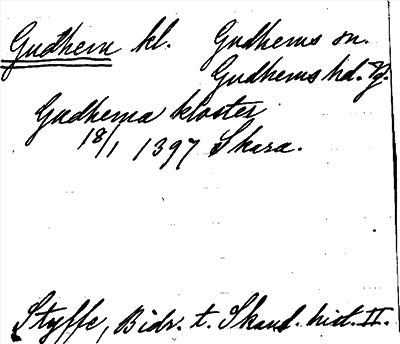 Gudhem kl. Gudhems sn.
Gudhems hd. Vg.
Gudhema kloster
18/1 1397 Skara.
Styffe, Bidr. t. Skand. hist. II.